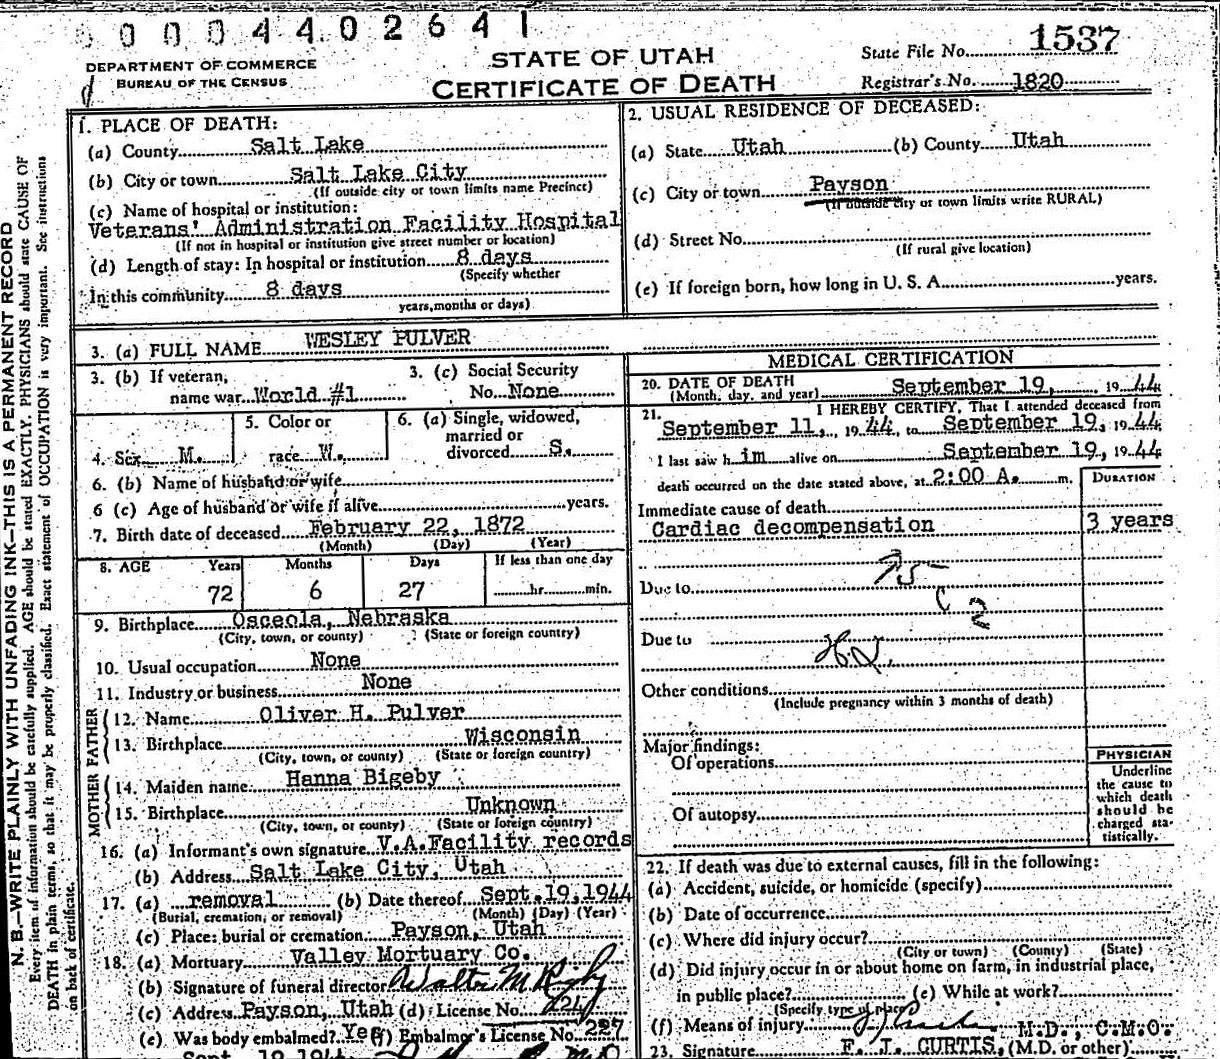 0 0 0 4 4 0 2 6 4 1
DEPARTMENT OF COMMERCE
BUREAU OF THE CENSUS
STATE OF UTAH
CERTIFICATE OF DEATH
State File No. 1537
Registrar's No. 1820
1. PLACE OF DEATH:
(a) County Salt Lake
(b) City or town Salt Lake City
(If outside city or town limits name Precinct)
(c) Name of hospital or institution:
Veterans' Administration Facility Hospital
(If not in hospital or institution give street number or location)
(d) Length of stay: In hospital or institution 8 days
(Specify whether
In this community 8 days
years, months or days)
2. USUAL RESIDENCE OF DECEASED:
(a) State Utah (b) County Utah
(c) City or town Payson
(If outside city or town limits write RURAL)
(d) Street No.
(If rural give location)
(e) If foreign born, how long in U. S. A. years.
3. (a) FULL NAME WESLEY PULVER
3. (b) If veteran, name war World #1
3. (c) Social Security No. None
4. Sex M.
5. Color or race W.
6. (a) Single, widowed, married or divorced S.
6. (b) Name of husband or wife
6 (c) Age of husband or wife if alive years.
7. Birth date of deceased February 22, 1872
(Month) (Day) (Year)
8. AGE Years Months Days If less than one day
72 6 27 hr. min.
9. Birthplace Osceola, Nebraska
(City, town, or county) (State or foreign country)
10. Usual occupation None
11. Industry or business None
FATHER
12. Name Oliver H. Pulver
13. Birthplace Wisconsin
(City, town, or county) (State or foreign country)
MOTHER
14. Maiden name Hanna Bigeby
15. Birthplace Unknown
(City, town, or county) (State or foreign country)
16. (a) Informant's own signature V.A.Facility records
(b) Address Salt Lake City, Utah
17. (a) removal (b) Date thereof Sept.19,1944
(Burial, cremation, or removal) (Month) (Day) (Year)
(c) Place: burial or cremation Payson, Utah
18. (a) Mortuary Valley Mortuary Co.
(b) Signature of funeral director Walter M Rigby
(c) Address Payson, Utah (d) License No. 224
(e) Was body embalmed? Yes (f) Embalmor's License No. 227
MEDICAL CERTIFICATION
20. DATE OF DEATH
(Month, day, and year) September 19, 19 44
21. I HEREBY CERTIFY, That I attended deceased from
September 11, 19 44, to September 19, 19 44
I last saw h im alive on September 19, 19 44
death occurred on the date stated above, at 2:00 A. m.
DURATION
Immediate cause of death
Cardiac decompensation 3 years
Due to
Due to
Other conditions
(Include pregnancy within 3 months of death)
Major findings:
Of operations
Of autopsy
PHYSICIAN
Underline
the cause to
which death
should be
charged sta-
tistically.
22. If death was due to external causes, fill in the following:
(a) Accident, suicide, or homicide (specify)
(b) Date of occurrence
(c) Where did injury occur?
(City or town) (County) (State)
(d) Did injury occur in or about home on farm, in industrial place,
in public place? (e) While at work?
(Specify type of place)
(f) Means of injury M.D., C.M.O.
23. Signature F. J. CURTIS, (M.D. or other)
N. B.—WRITE PLAINLY WITH UNFADING INK—THIS IS A PERMANENT RECORD
Every item of information should be carefully supplied. AGE should be stated EXACTLY. PHYSICIANS should state CAUSE OF
DEATH in plain terms, so that it may be properly classified. Exact statement of OCCUPATION is very important. See instructions
on back of certificate.